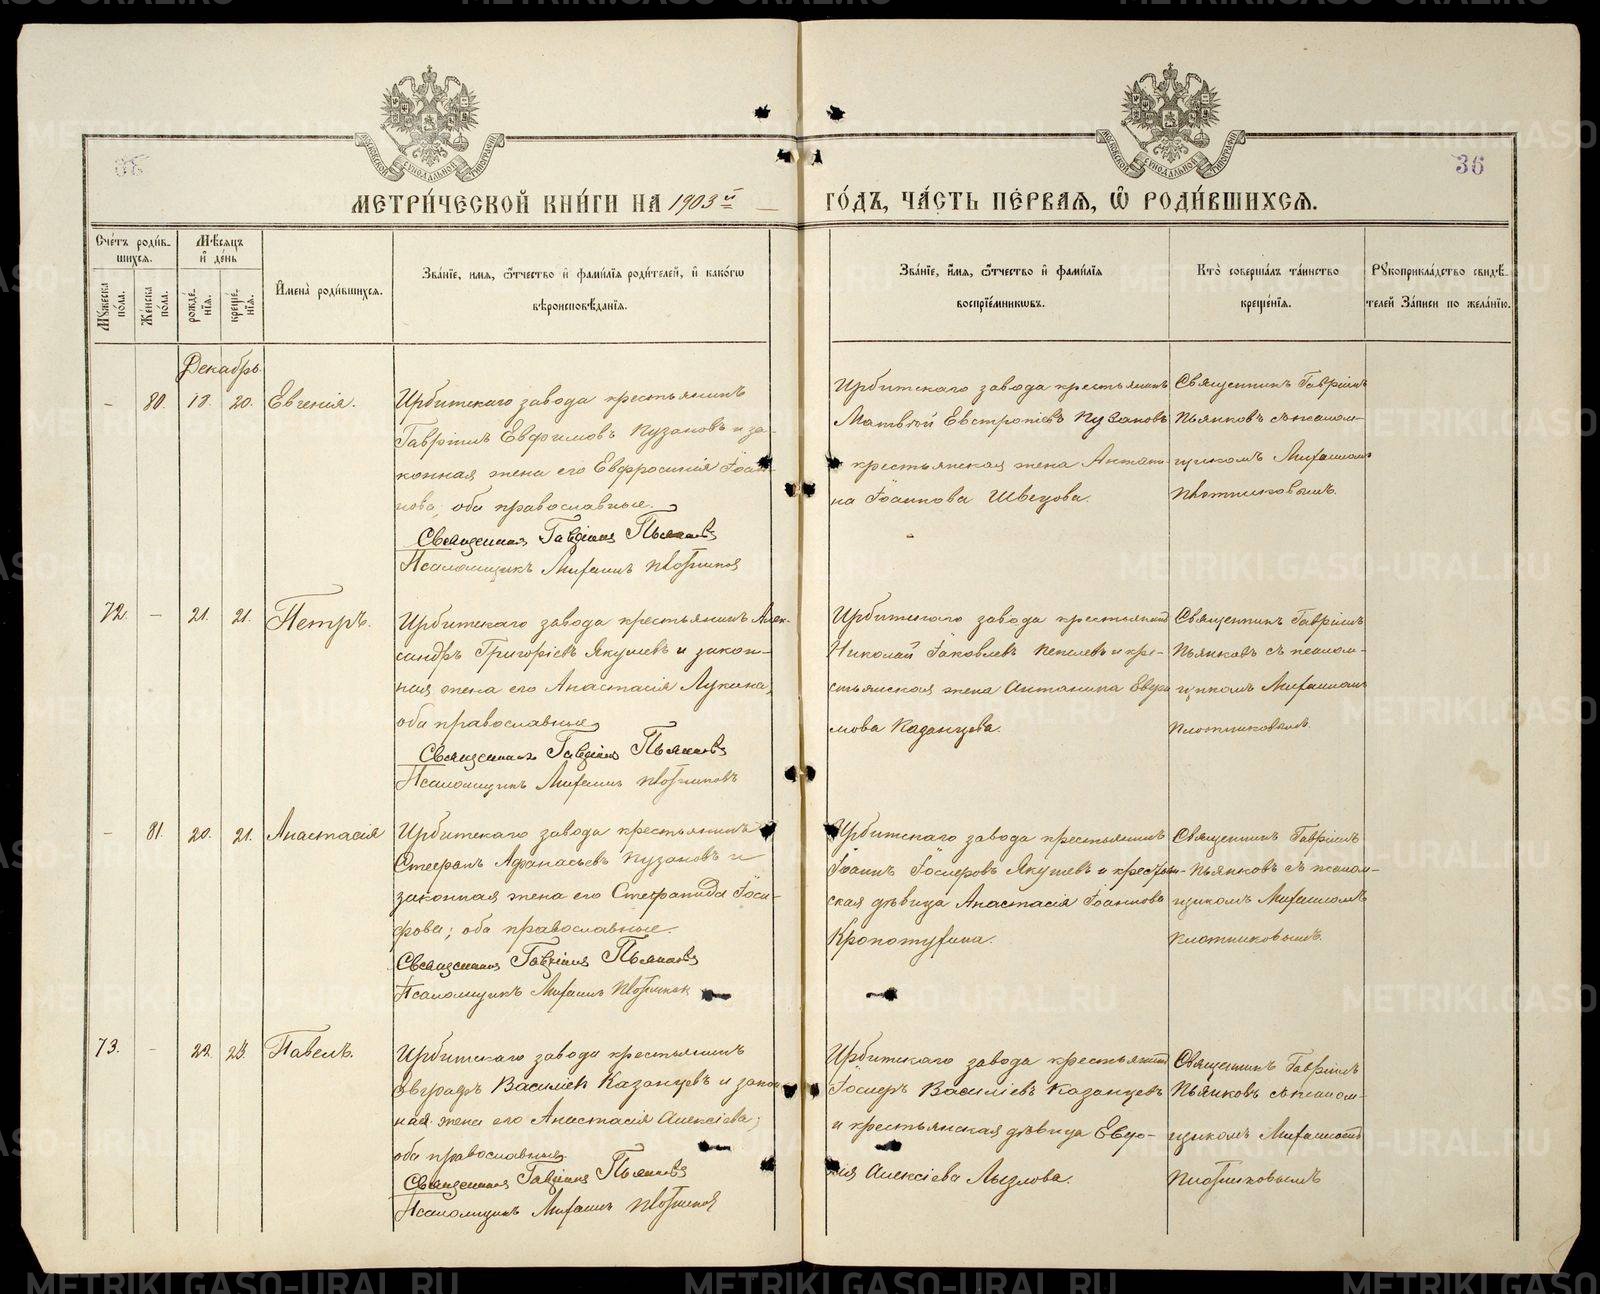 36
МЕТРИ́ЧЕСКОЙ КНИ́ГИ НА 1903й
ГО́ДЪ, ЧА́СТЬ ПЕ́РВАѦ, Ѽ РОДИ́ВШИХСѦ.
Сче́тъ роди́вшихсѧ.
Мꙋ́жеска пола.
Же́нска пола.
Мѣ́сѧцъ и́ де́нь
рожде́нїѧ.
креще́нїѧ.
И҆мена̀ роди́вшихсѧ.
Зва́нїе, имѧ, ѻ҆́тчество и҆ фами́лїѧ роди́телей, и҆ како́гѡ
вѣроисповѣ́данїѧ.
Зва́нїе, и҆́мѧ, ѻ҆́тчество и҆ фами́лїѧ
воспрїе́мникѡвъ.
Кто̀ соверша́лъ та́инство
креще́нїѧ.
Рꙋкоприкла́дство свидѣ́-
телей За́писи по жела́нїю.
Декабрь
– 80. 18. 20. Евгенія.
Ирбитскаго завода крестьянинъ
Гавріилъ Евфимовъ Пузановъ и за-
конная жена его Евфросинія Іоан-
нова, оба православные.
Священникъ Гавріилъ Пьянковъ
Псаломщикъ Михаилъ Плотников
Ирбитскаго завода крестьянинъ
Матвѣй Евстропіевъ Пузановъ
крестьянская жена Антони-
на Іоаннова Швецова.
Священникъ Гавріилъ
Пьянковъ съ псалом-
щикомъ Михаиломъ
Плотниковымъ.
72. – 21. 21. Петръ.
Ирбитскаго завода крестьянинъ Алек-
сандръ Григоріевъ Якушевъ и закон-
ная жена его Анастасія Лукина,
оба православные
Священникъ Гавріилъ Пьянковъ
Псаломщикъ Михаилъ Плотниковъ
Ирбитскаго завода крестьянинъ
Николай Іаковлевъ и кре-
стьянская жена Антонина Евфи
мова Казанцева.
Священникъ Гавріилъ
Пьянковъ съ псалом-
щикомъ Михаиломъ
Плотниковымъ.
– 81. 20. 21. Анастасія
Ирбитскаго завода крестьянинъ
Стефанъ Афанасьевъ Пузановъ и
законная жена его Стефанида Іоси-
фова; оба православные.
Священникъ Гавріилъ Пьянковъ
Псаломщикъ Михаилъ Плотников
Ирбитскаго завода крестьянинъ
Іоаннъ Іосифовъ Якушевъ и крестьян-
ская дѣвица Анастасія Іоаннова
Кропотухина.
Священникъ Гавріилъ
Пьянковъ съ псалом-
щикомъ Михаиломъ
Плотниковымъ.
73. – 22. 23. Павелъ.
Ирбитскаго завода крестьянинъ
Евграфъ Василіев Казанцевъ и закон
ная жена его Анастасія Алексіева;
оба православные
Священникъ Гавріилъ Пьянковъ
Псаломщикъ Михаилъ Плотников
Ирбитскаго завода крестьянинъ
Іосифъ Василіевъ Казанцевъ
и крестьянская дѣвица Евдо-
кія Алексіева Лызлова.
Священникъ Гавріилъ
Пьянковъ съ псалом-
щикомъ Михаиломъ
Плотниковымъ
METRIKI.GASO-URAL.RU